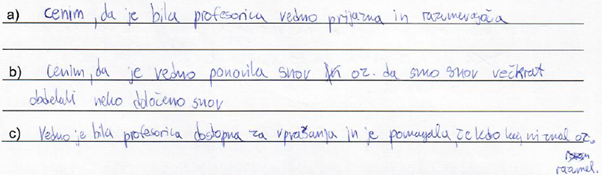 a) cenim, da je bila profesorica vedno prijazna in razumevajoča
b) cenim, da je vedno ponovila snov oz. da smo snov večkrat
obdelali neko določeno snov
c) Vedno je bila profesorica dostopna za vprašanja in je pomagala, če kdo kaj ni znal oz.
razumel.